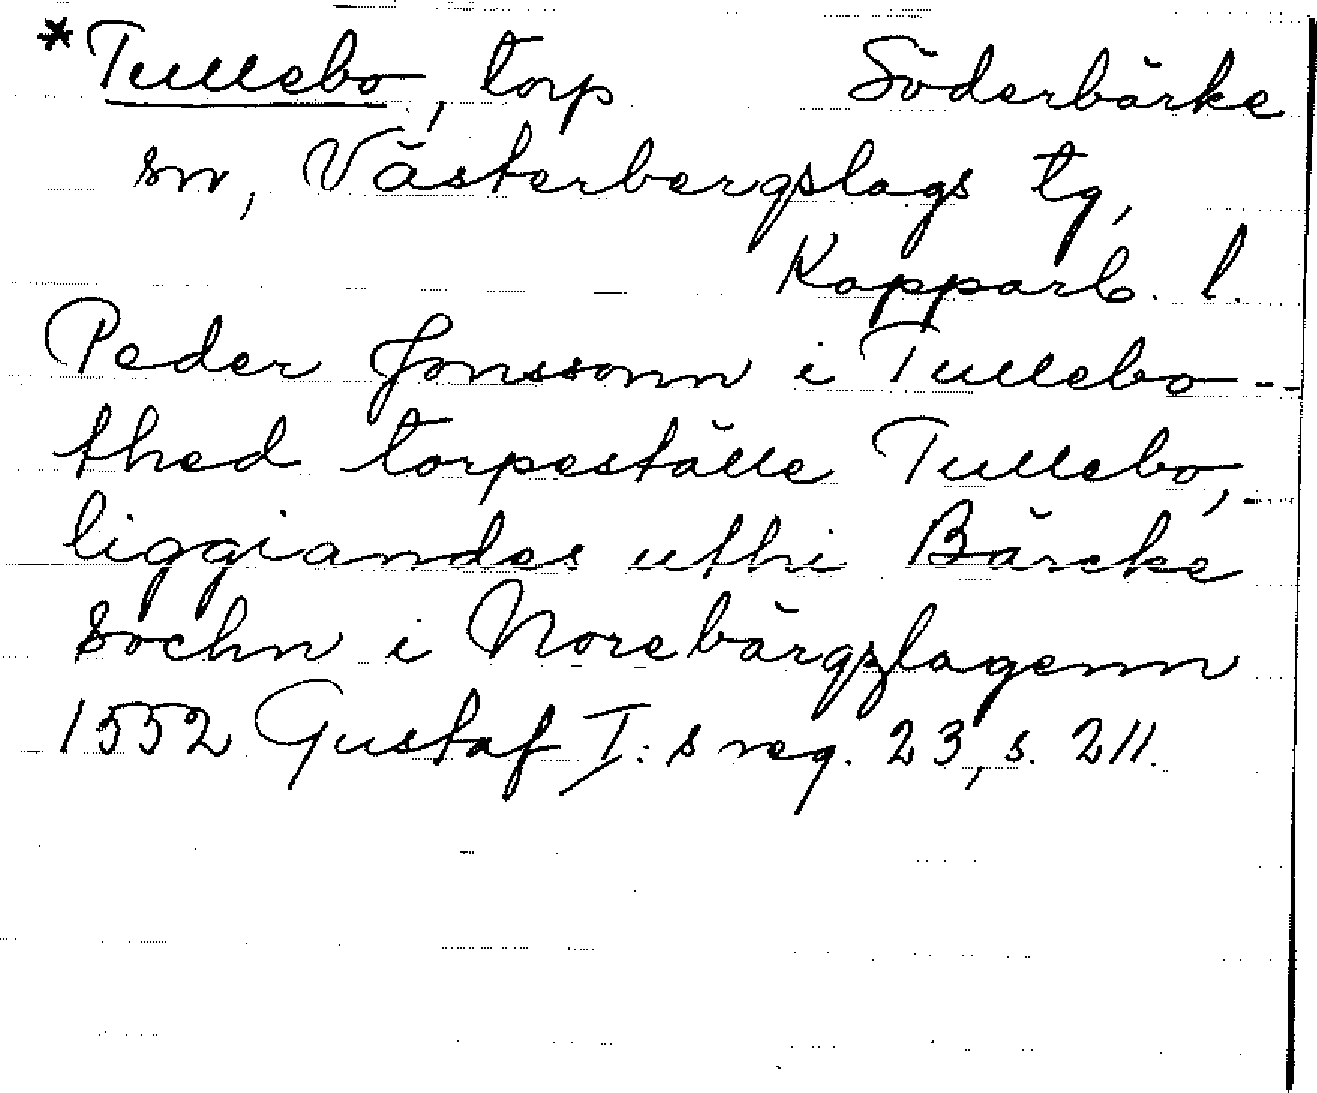 *Tullebo, torp Söderbärke
sn, Västerbergslags tg,
Kopparb. l.
Peder Jonssonn i Tullebo --
thed torpeställe Tullebo, --
liggiandes uthi Bärcke
sochn i Norebärgzlagenn
1552 Gustaf I:s reg. 23, s. 211.